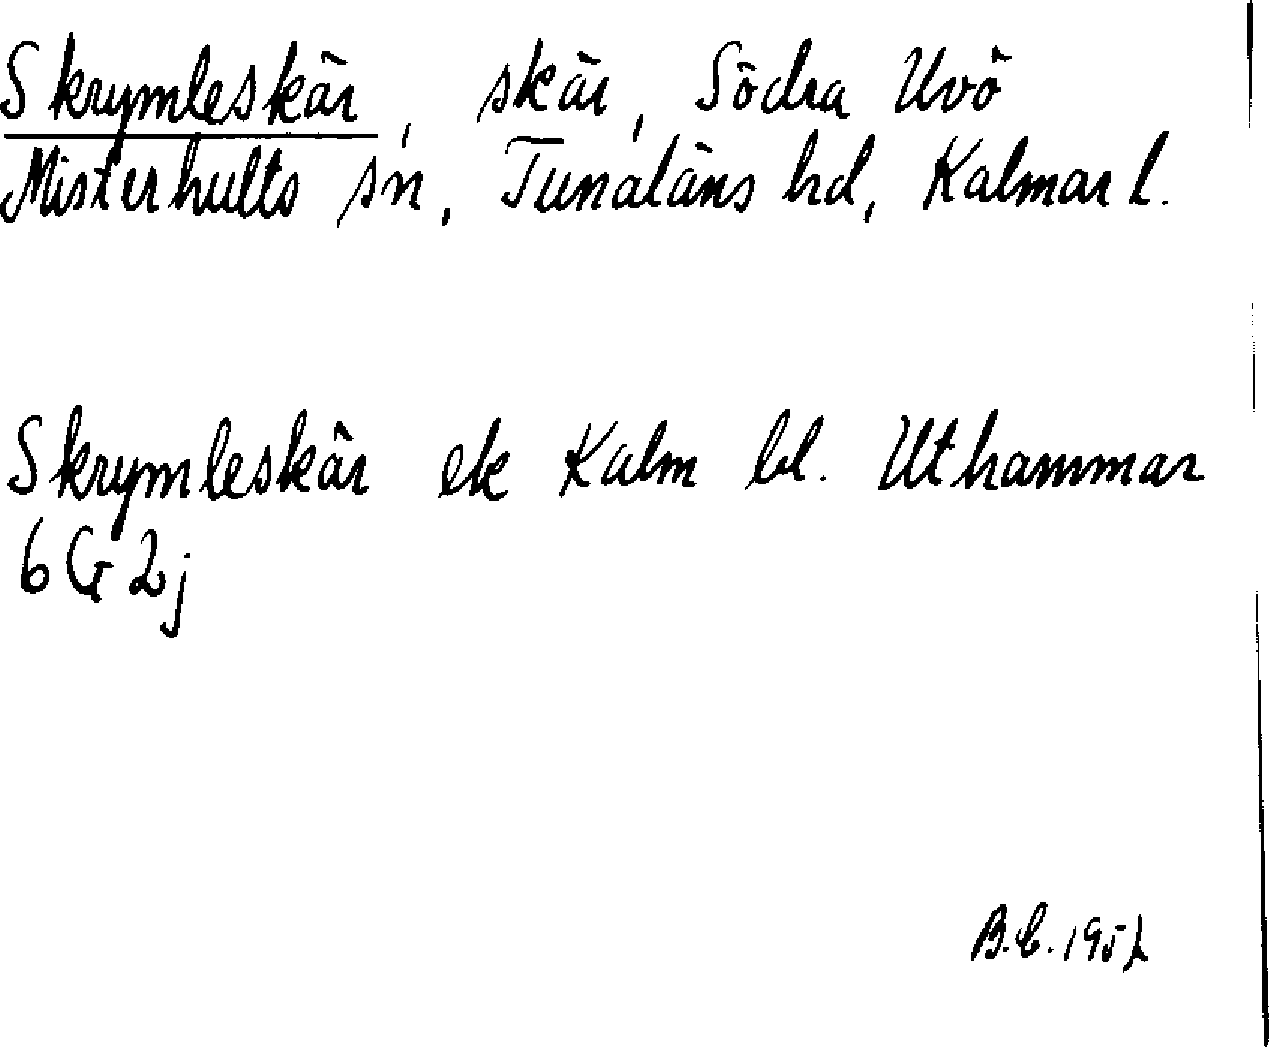 Skrymleskär, skär, Södra Uvö
Misterhults sn, Tunaläns hd, Kalmar l.
Skrymleskär ek Kalm bl. Uthammar
6 G 2j
B.C. 1952